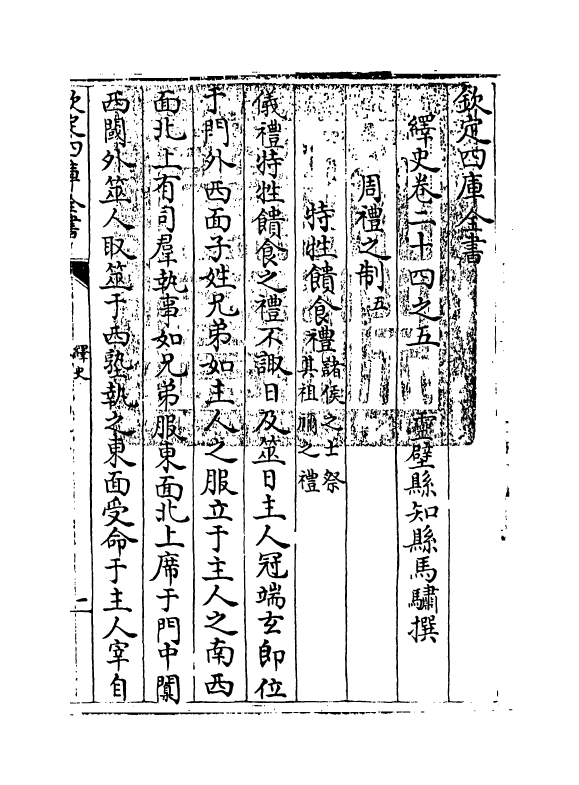 欽定四庫全書
繹史卷二十四之五
靈壁縣知縣馬驌撰
周禮之制五
特牲饋食禮諸侯之士祭其祖禰之禮
儀禮特牲饋食之禮不諏日及筮日主人冠端玄即位
于門外西面子姓兄弟如主人之服立于主人之南西
面北上有司羣執事如兄弟服東面北上席于門中闑
西閾外筮人取筮于西塾執之東面受命于主人宰自
欽定四庫全書
繹史